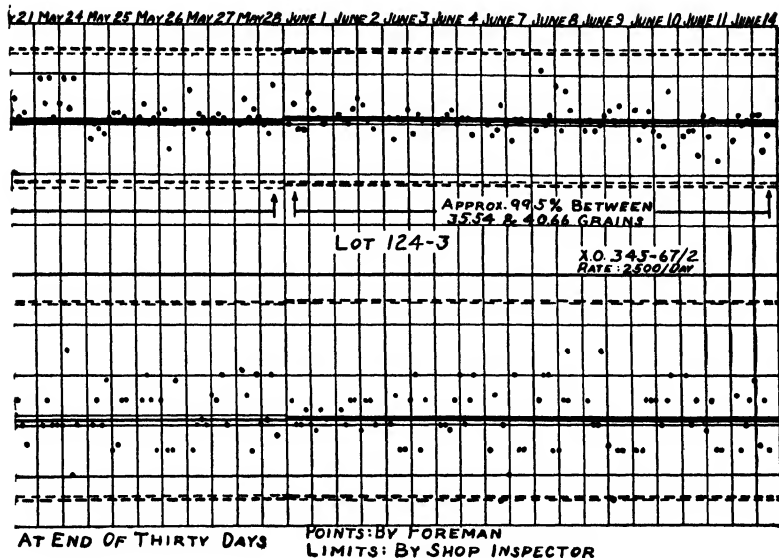 21 MAY 24 MAY 25 MAY 26 MAY 27 MAY 28 JUNE 1 JUNE 2 JUNE 3 JUNE 4 JUNE 7 JUNE 8 JUNE 9 JUNE 10 JUNE 11 JUNE 14
APPROX. 99.5% BETWEEN
35.54 & 40.66 GRAINS
LOT 124-3
X.O. 345-67/2
RATE: 2500/DAY
AT END OF THIRTY DAYS
POINTS: BY FOREMAN
LIMITS: BY SHOP INSPECTOR